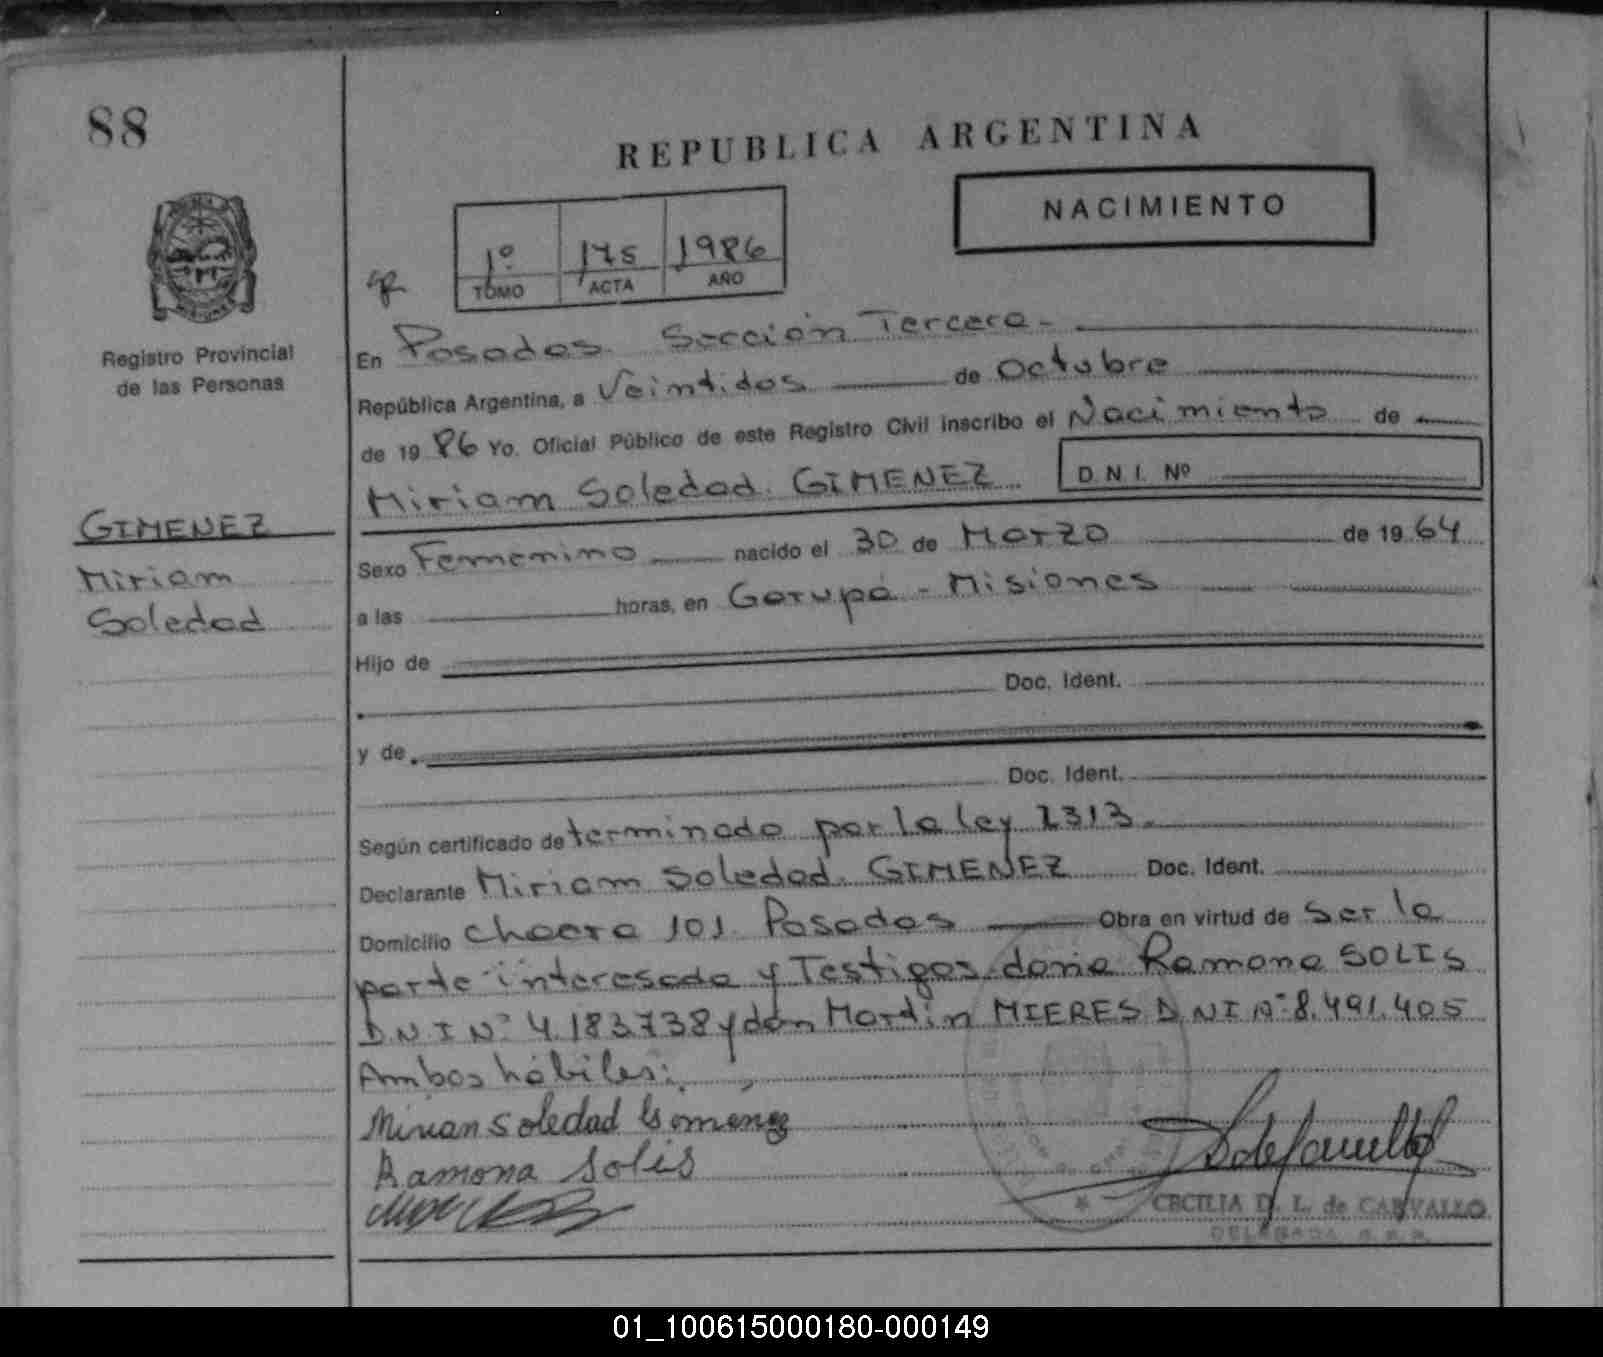 88
REPUBLICA ARGENTINA
NACIMIENTO
1º 175 1986
TOMO ACTA AÑO
Registro Provincial
de las Personas
En Posadas Sección Tercera -
República Argentina, a Veintidos de Octubre
de 1986 Yo. Oficial Público de este Registro Civil inscribo el Nacimiento de
Miriam Soledad. GIMENEZ D.N.I. Nº
GIMENEZ
Miriam
Soledad
Sexo Femenino nacido el 30 de Marzo de 1964
a las horas, en Garupá - Misiones
Hijo de
Doc. Ident.
y de
Doc. Ident.
Según certificado determinado por la ley 2313.
Declarante Miriam Soledad. GIMENEZ Doc. Ident.
Domicilio chacra 101. Posadas Obra en virtud de ser la
parte interesada y Testigos doña Ramona SOLIS
D.N.I Nº 4.183.738 y don Martin MIERES D.N.I Nº 8.491.405
Ambos hábiles:
Mirian Soledad Gimenez
Ramona Solis
CECILIA D. L. de CARVALLO
DELEGADA
01_100615000180-000149